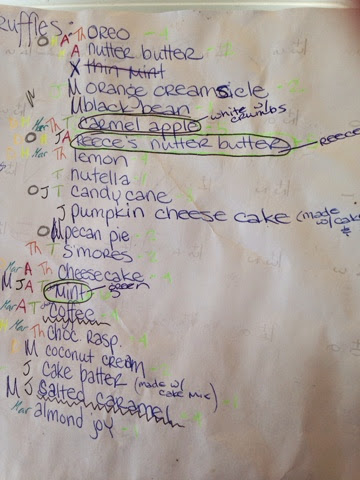 ruffles:
O A Th OREO - 4
A nutter butter - 1
X thin mint
M orange creamsicle - 2
M black bean - 1
Mar Th T Carmel apple white w/ crumbs
J A Reece's nutter butter reece
Mar Th lemon
T nutella
O J T candy cane - 2
J pumpkin cheese cake (made w/ cake
O M pecan pie
Th T S'mores
Mar A Th cheesecake - 4
M J A T mint green
Mar A T coffee
Mar Th choc. rasp. - 4
M coconut cream
J cake batter (made w/ cake mix)
M J salted caramel
Mar almond joy